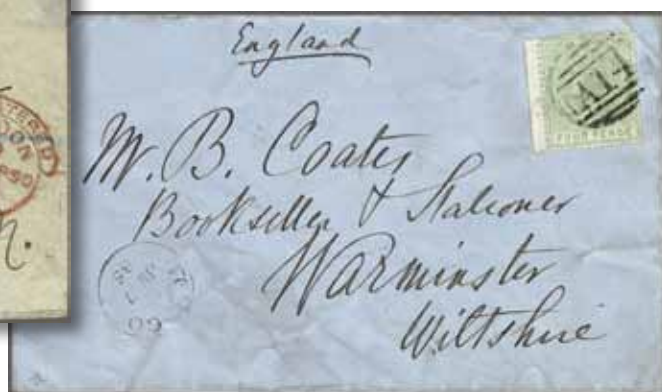 England
Mr. B. Coates
Bookseller & Stationer
Warminster
Wiltshire
A14